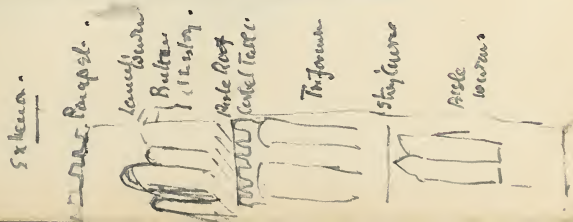 Exterior.
Parapet.
Lancet
Window
Aisle Roof
Corbel Table
Triforium
String Course
Aisle
Windows